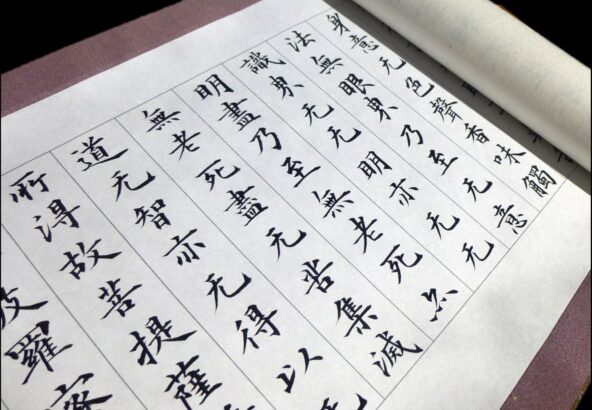 身意无色聲香味觸
法無眼界乃至无意
識界无无明亦无无
明盡乃至無老死亦
無老死盡无苦集滅
道无智亦无得以
所淂故菩提薩
波羅蜜